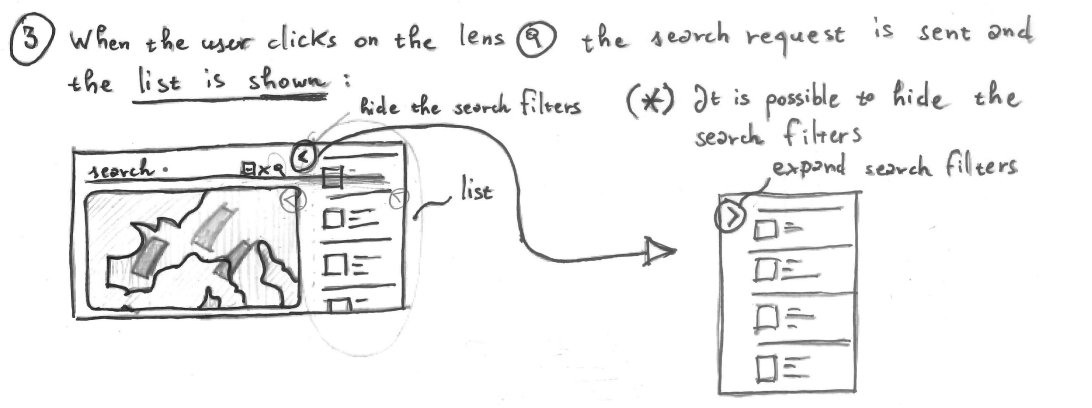 3 When the user clicks on the lens the search request is sent and
the list is shown :
hide the search filters
(*) It is possible to hide the
search filters
expand search filters
search .
x
<
list
>